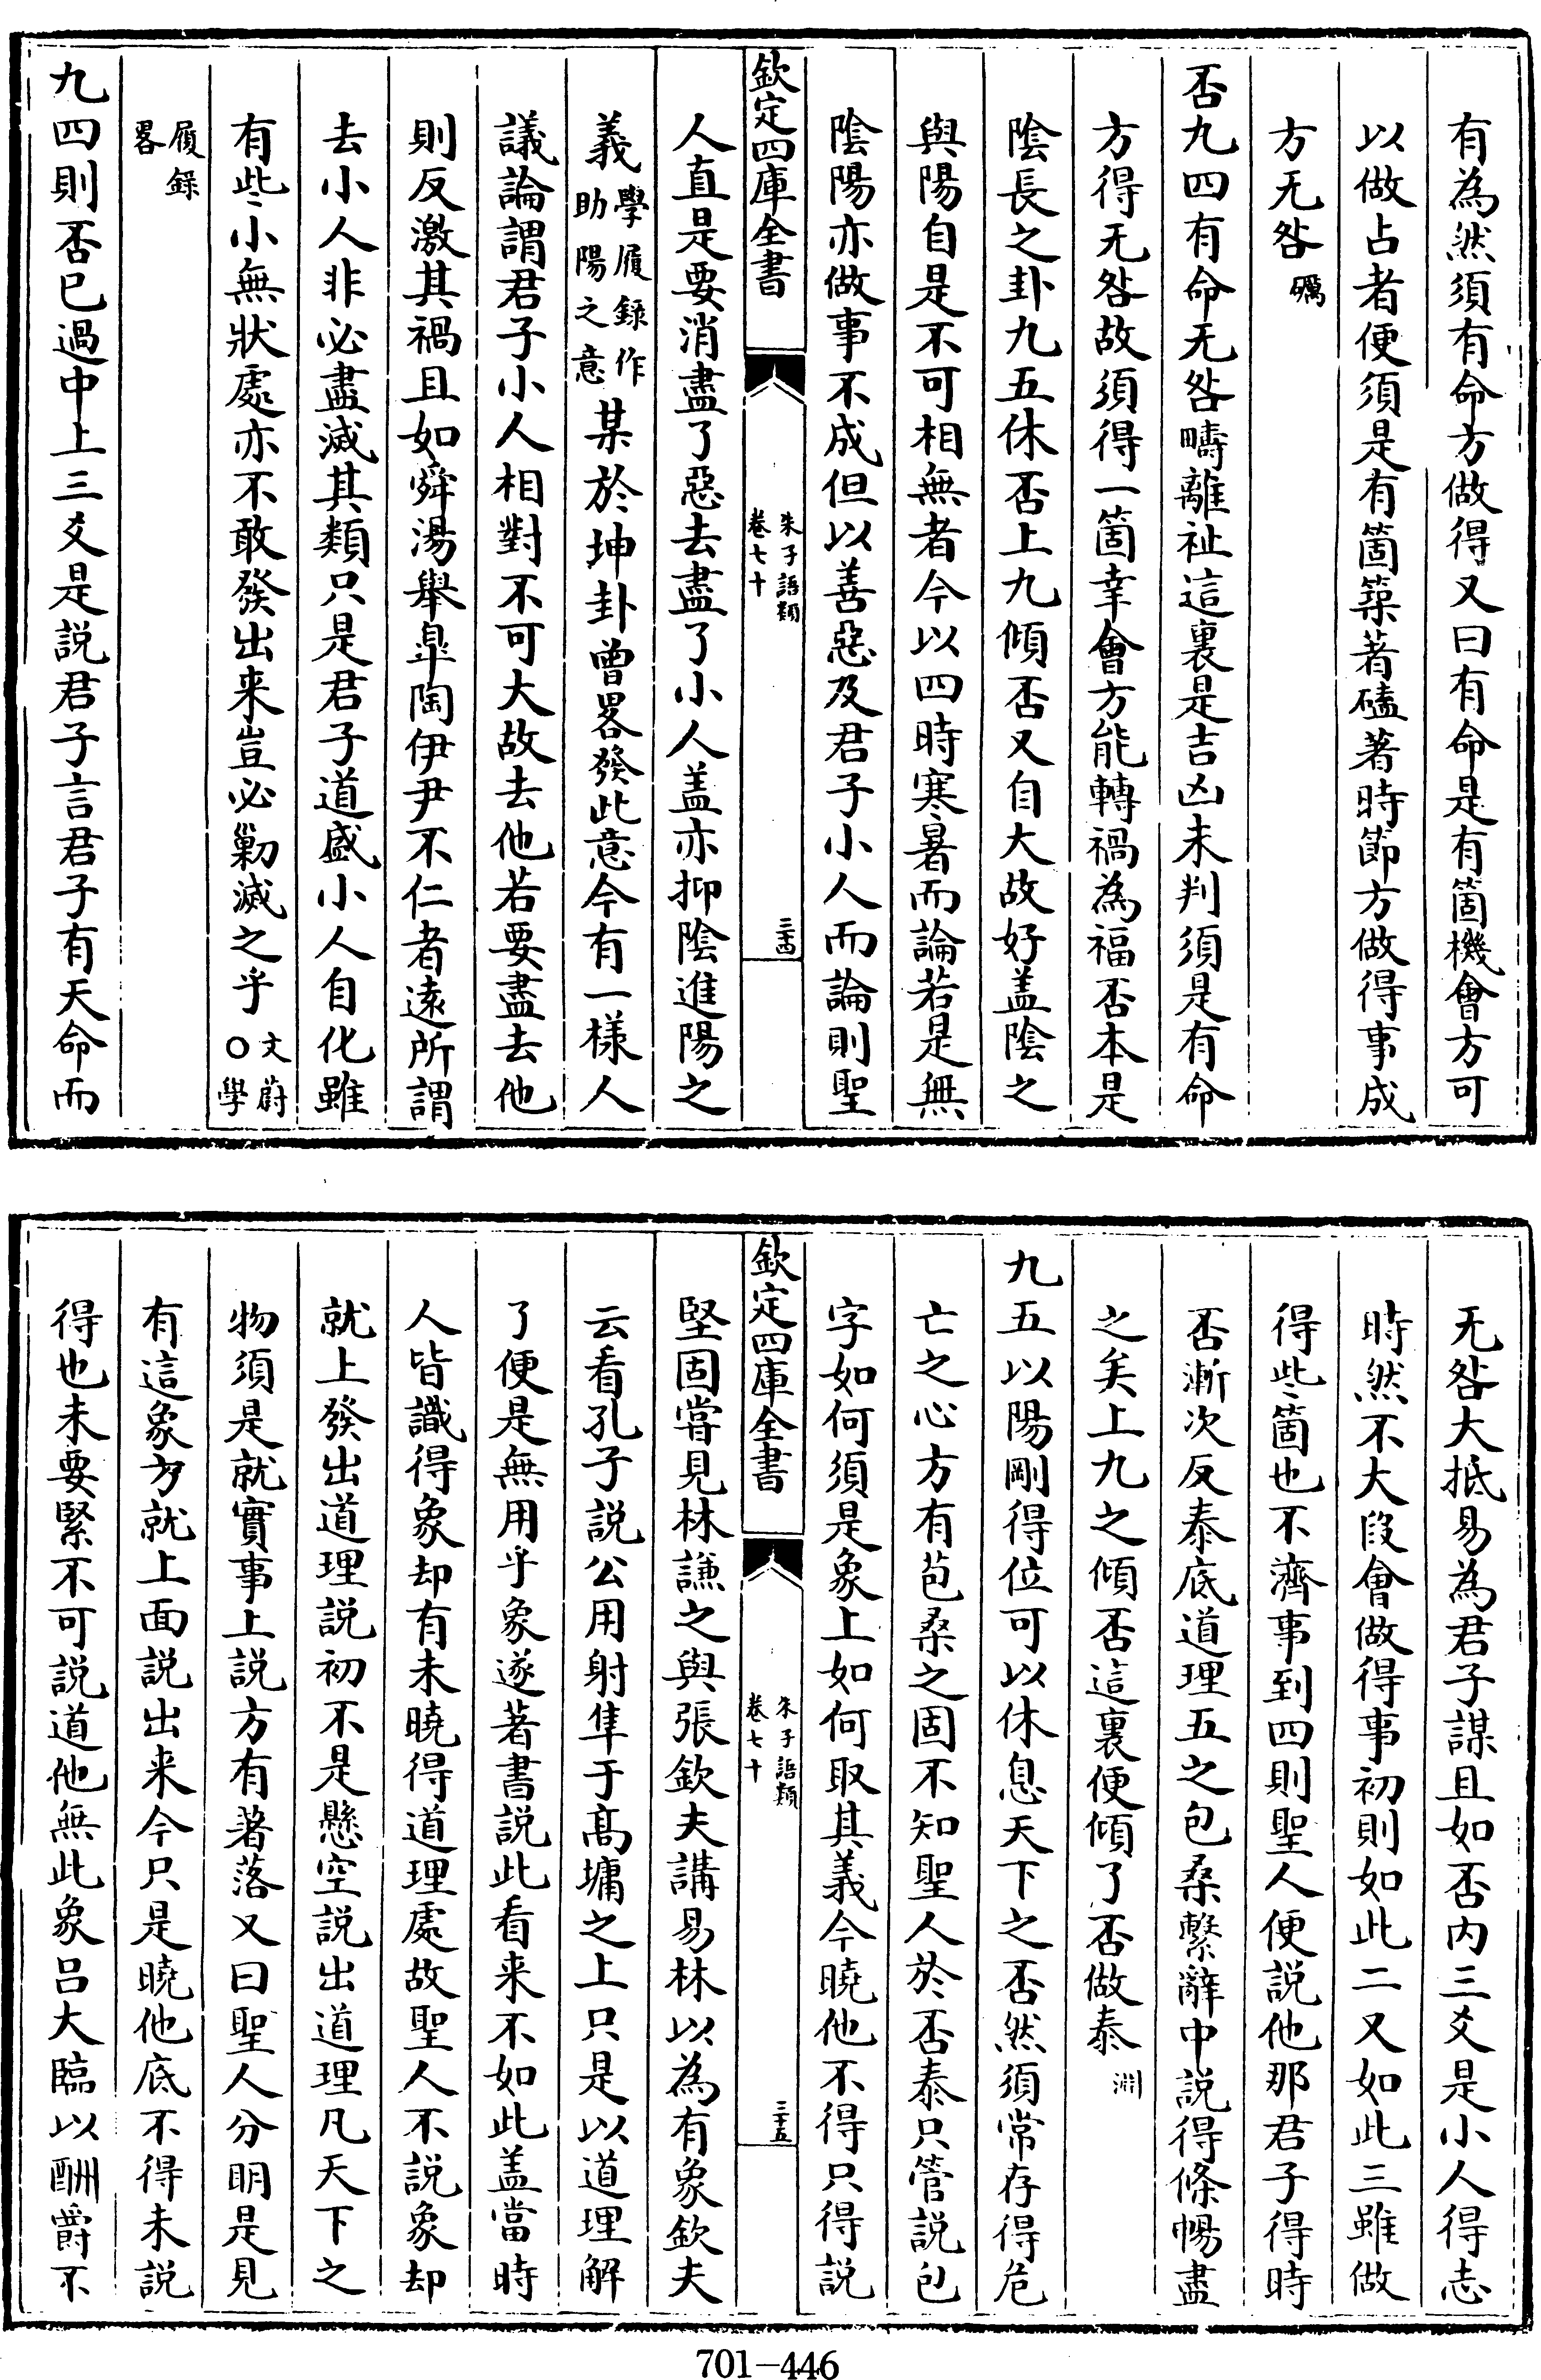 有為然須有命方做得又曰有命是有箇機會方可
以做占者便須是有箇築著磕著時節方做得事成
方无咎礪
否九四有命无咎疇離祉這裏是吉凶未判須是有命
方得无咎故須得一箇幸會方能轉禍為福否本是
陰長之卦九五休否上九傾否又自大故好盖陰之
與陽自是不可相無者今以四時寒暑而論若是無
陰陽亦做事不成但以善惡及君子小人而論則聖
欽定四庫全書
朱子語類
卷七十
三十四
人直是要消盡了惡去盡了小人盖亦抑陰進陽之
義學履録作助陽之意某於坤卦曾畧發此意今有一様人
議論謂君子小人相對不可大故去他若要盡去他
則反激其禍且如舜湯舉臯陶伊尹不仁者逺所謂
去小人非必盡滅其類只是君子道盛小人自化雖
有些小無狀處亦不敢發出来豈必勦滅之乎文蔚○學
履録畧
九四則否已過中上三爻是説君子言君子有天命而
无咎大抵易為君子謀且如否内三爻是小人得志
時然不大段會做得事初則如此二又如此三雖做
得些箇也不濟事到四則聖人便説他那君子得時
否漸次反泰底道理五之包桑繫辭中説得條暢盡
之矣上九之傾否這裏便傾了否做泰淵
九五以陽剛得位可以休息天下之否然須常存得危
亡之心方有苞桑之固不知聖人於否泰只管説包
字如何須是象上如何取其義今曉他不得只得説
欽定四庫全書
朱子語類
卷七十
三十五
堅固嘗見林謙之與張欽夫講易林以為有象欽夫
云看孔子説公用射隼于髙墉之上只是以道理解
了便是無用乎象遂著書説此看来不如此盖當時
人皆識得象却有未曉得道理處故聖人不説象却
就上發出道理説初不是懸空説出道理凡天下之
物須是就實事上説方有著落又曰聖人分明是見
有這象方就上面説出来今只是曉他底不得未説
得也未要緊不可説道他無此象吕大臨以酬爵不
701-446